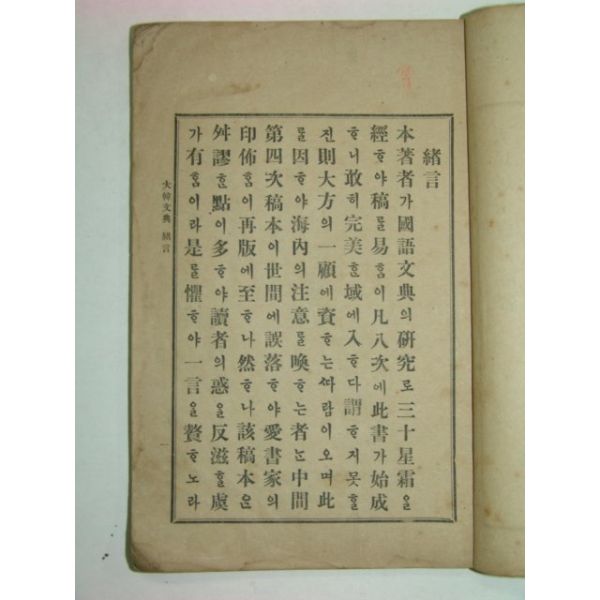 緖言
本著者가國語文典의硏究로三十星霜을
經ᄒᆞ야稿를易ᄒᆞᆷ이凡八次에此書가始成
ᄒᆞ니敢히完美ᄒᆞᆫ域에入ᄒᆞ다謂ᄒᆞ지못ᄒᆞᆯ
진則大方의一顧에資ᄒᆞ는ᄯᅡ람이오며此
를因ᄒᆞ야海內의注意를喚ᄒᆞ는者ᄂᆞᆫ中間
第四次稿本이世間에誤落ᄒᆞ야愛書家의
印佈ᄒᆞᆷ이再版에至ᄒᆞ나然ᄒᆞ나該稿本은
舛謬ᄒᆞᆫ點이多ᄒᆞ야讀者의惑을反滋ᄒᆞᆯ處
가有ᄒᆞᆷ이라是를懼ᄒᆞ야一言을贅ᄒᆞ노라
大韓文典 緖言